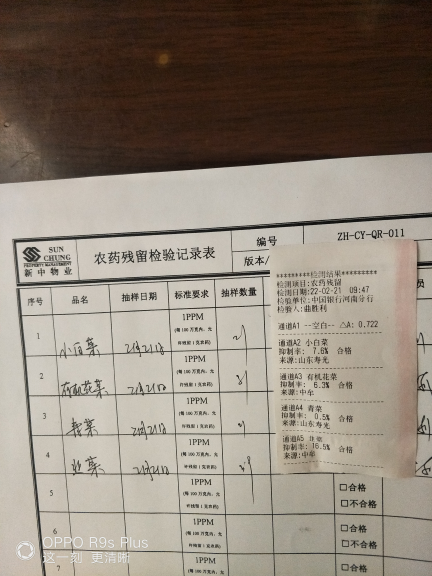 SUN
CHUNG
PROPERTY MANAGEMENT
新中物业
农药残留检验记录表
编号
ZH-CY-QR-011
版本/
序号
品名
抽样日期
标准要求
抽样数量
1
小白菜
2月21日
1PPM
(每100万克内，允
许残留1克农药)
2
有机花菜
2月21日
1PPM
(每100万克内，允
许残留1克农药)
3
青菜
2月21日
1PPM
(每100万克内，允
许残留1克农药)
4
2月21日
1PPM
(每100万克内，允
许残留1克农药)
5
1PPM
(每100万克内，允
许残留1克农药)
□合格
□不合格
6
1PPM
(每100万克内，允
许残留1克农药)
□合格
□不合格
7
1PPM
(每100万克内，允
□合格
*********检测结果*********
检测项目:农药残留
检测日期:22-02-21 09:47
检验单位:中国银行河南分行
检验人:曲胜利
通道A1 --空白-- △A: 0.722
通道A2 小白菜
抑制率: 7.6% 合格
来源:山东寿光
通道A3 有机花菜
抑制率: 6.3% 合格
来源:中牟
通道A4 青菜
抑制率: 0.5% 合格
来源:山东寿光
通道A5
抑制率: 16.5% 合格
来源:中牟
OPPO R9s Plus
这一刻 更清晰